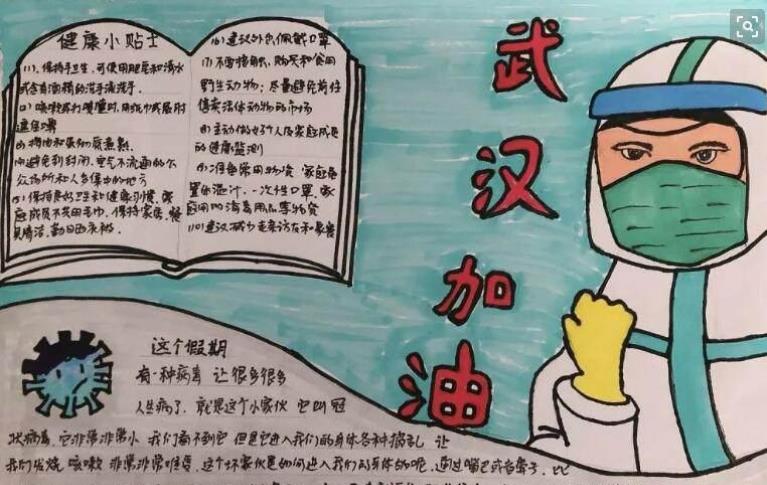 健康小贴士
(1)、保持手卫生,可使用肥皂和清水
或含有酒精的洗手液洗手.
(2) 咳嗽或打喷嚏时,用纸巾或屈肘
遮住口鼻
(3) 将肉和蛋彻底煮熟.
(4) 避免到封闭、空气不流通的公
众场所和人多集中的地方
(5) 保持良好卫生和健康习惯,家
庭成员不共用毛巾,保持家居、餐
具清洁,勤日晒衣被.
(6) 建议外出佩戴口罩
(7) 不要接触、购买和食用
野生动物;尽量避免前往
售卖活体动物的市场
(8) 主动做好个人及家庭成员
的健康监测
(9) 准备常用物资,家庭备
置体温计、一次性口罩,家
庭用的消毒用品等物资
(10) 建议减少走亲访友和聚餐
武
汉
加
油
这个假期
有一种病毒 让很多很多
人生病了. 就是这个小家伙 它叫 冠
状病毒. 它非常非常小 我们看不到它 但是它进入我们的身体各种捣乱 让
我们发烧 咳嗽 非常非常难受. 这个坏家伙是如何进入我们的身体的呢, 通过嘴巴或者鼻子, 比